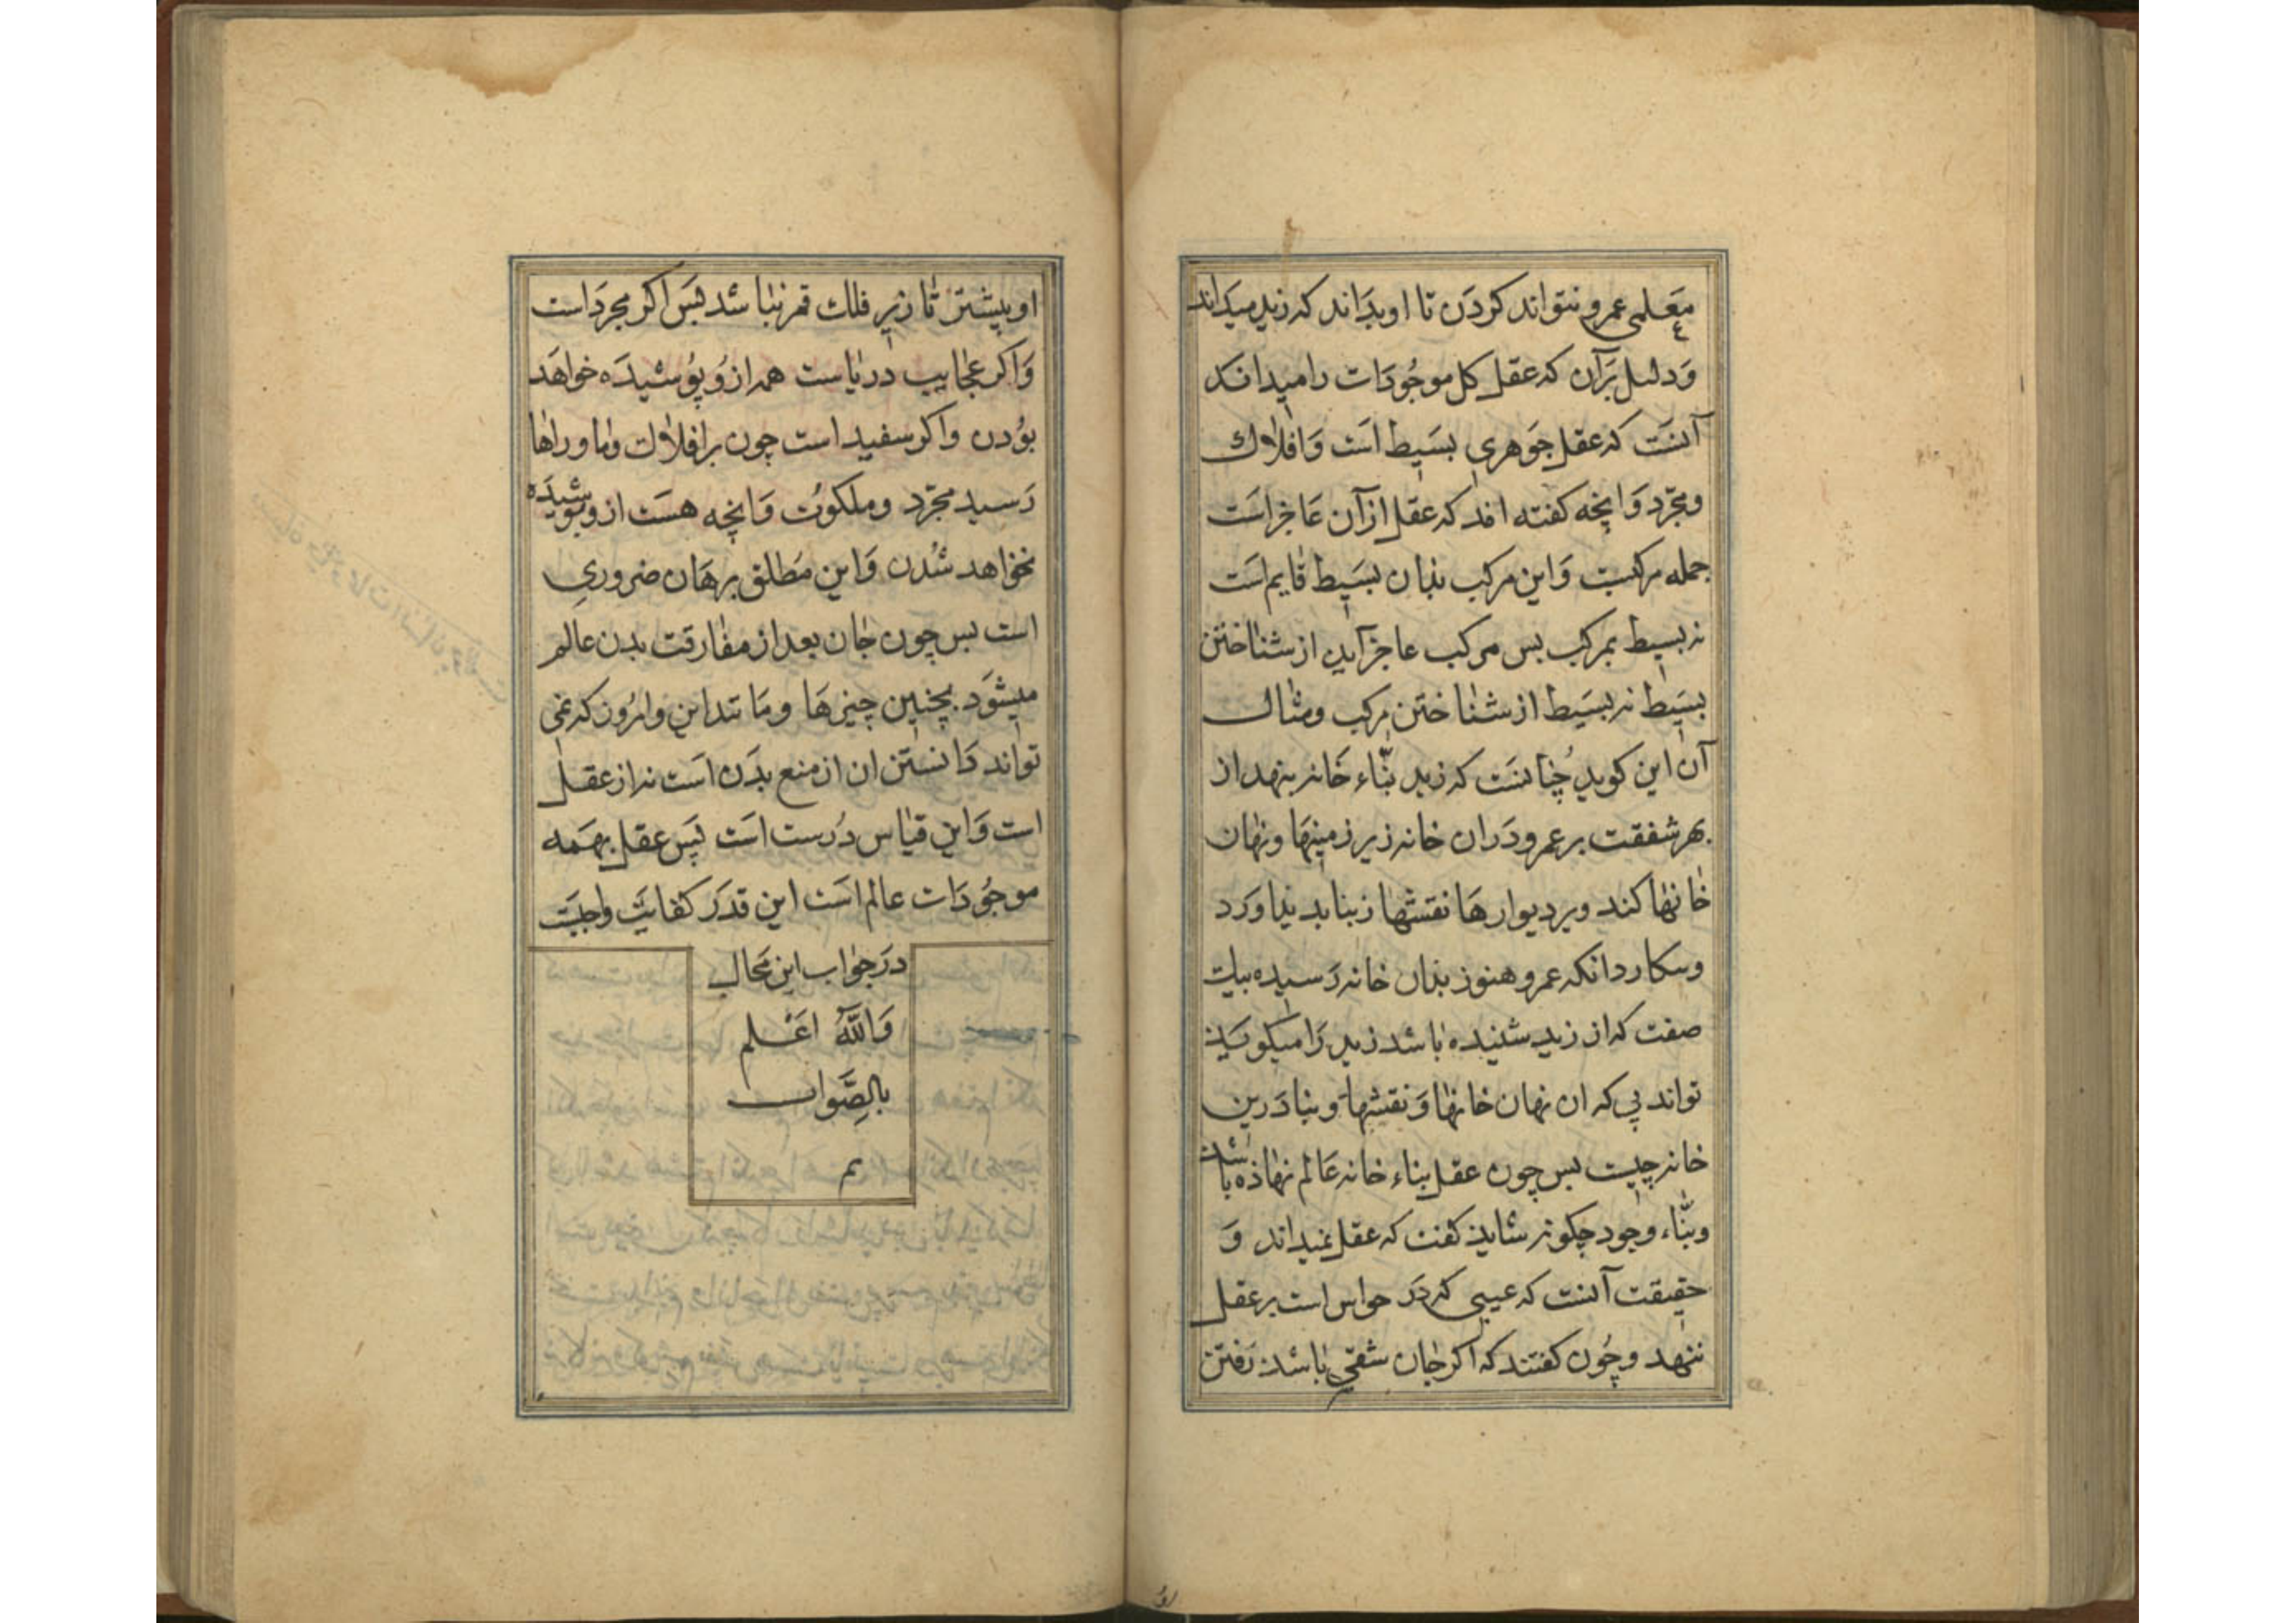 معلمی عمرو نتواند کردن تا او بداند که زید میداند
و دلیل بر آن که عقل کل موجودات را میداند
آنست که عقل جوهری بسیط است و افلاک
و مجرّد و انچه کفته اند که عقل از آن عاجز است
جمله مرکبست و این مرکب بذان بسیط قایم است
نه بسیط بمرکب بس مرکب عاجز آید از شناختن
بسیط نه بسیط از شناختن مرکب و مثال
آن این کوید چنانست که زید بنّاء خانه بنهد از
بهر شفقت بر عمرو و دران خانه زیر زمینها و نهان
خانها کند و بر دیوارها نقشها زیبا بدید اورد
و بنکارد انکه عمرو هنوز بذان خانه رسیده بیک
صفت که از زید شنیده باشد زید را میکوید
تواند بی که ان نهان خانها و نقشها و بنا درین
خانه چیست بس چون عقل بناء خانه عالم نهاذه باشد
و بنّاء وجود چکونه شاید کفت که عقل نمیداند و
حقیقت آنست که عیبی که در حواس است بر عقل
ننهد و چون کفتند که اکر جان شقی باشد رفتن
او بیشتر تا زیر فلک قمر نباشد پس اکر مجرد است
و اکر عجایب دریاست هم از و پوشیده خواهد
بودن و اکر سفید است چون بر افلاک و ما وراها
رسید مجرّد و ملکوت و انچه هست از و پوشیده
نخواهد شدن و این مطلق برهان ضروری
است بس چون جان بعد از مفارقت بدن عالم
میشود بچنین چیزها و مانند این و امروز که نمی
تواند دانستن ان از منع بدن است نه از عقل
است و این قیاس درست است پس عقل بهمه
موجودات عالم است این قدر کفایت واجبست
در جواب این محال
و اللّه اعلم
بالصّواب
تم